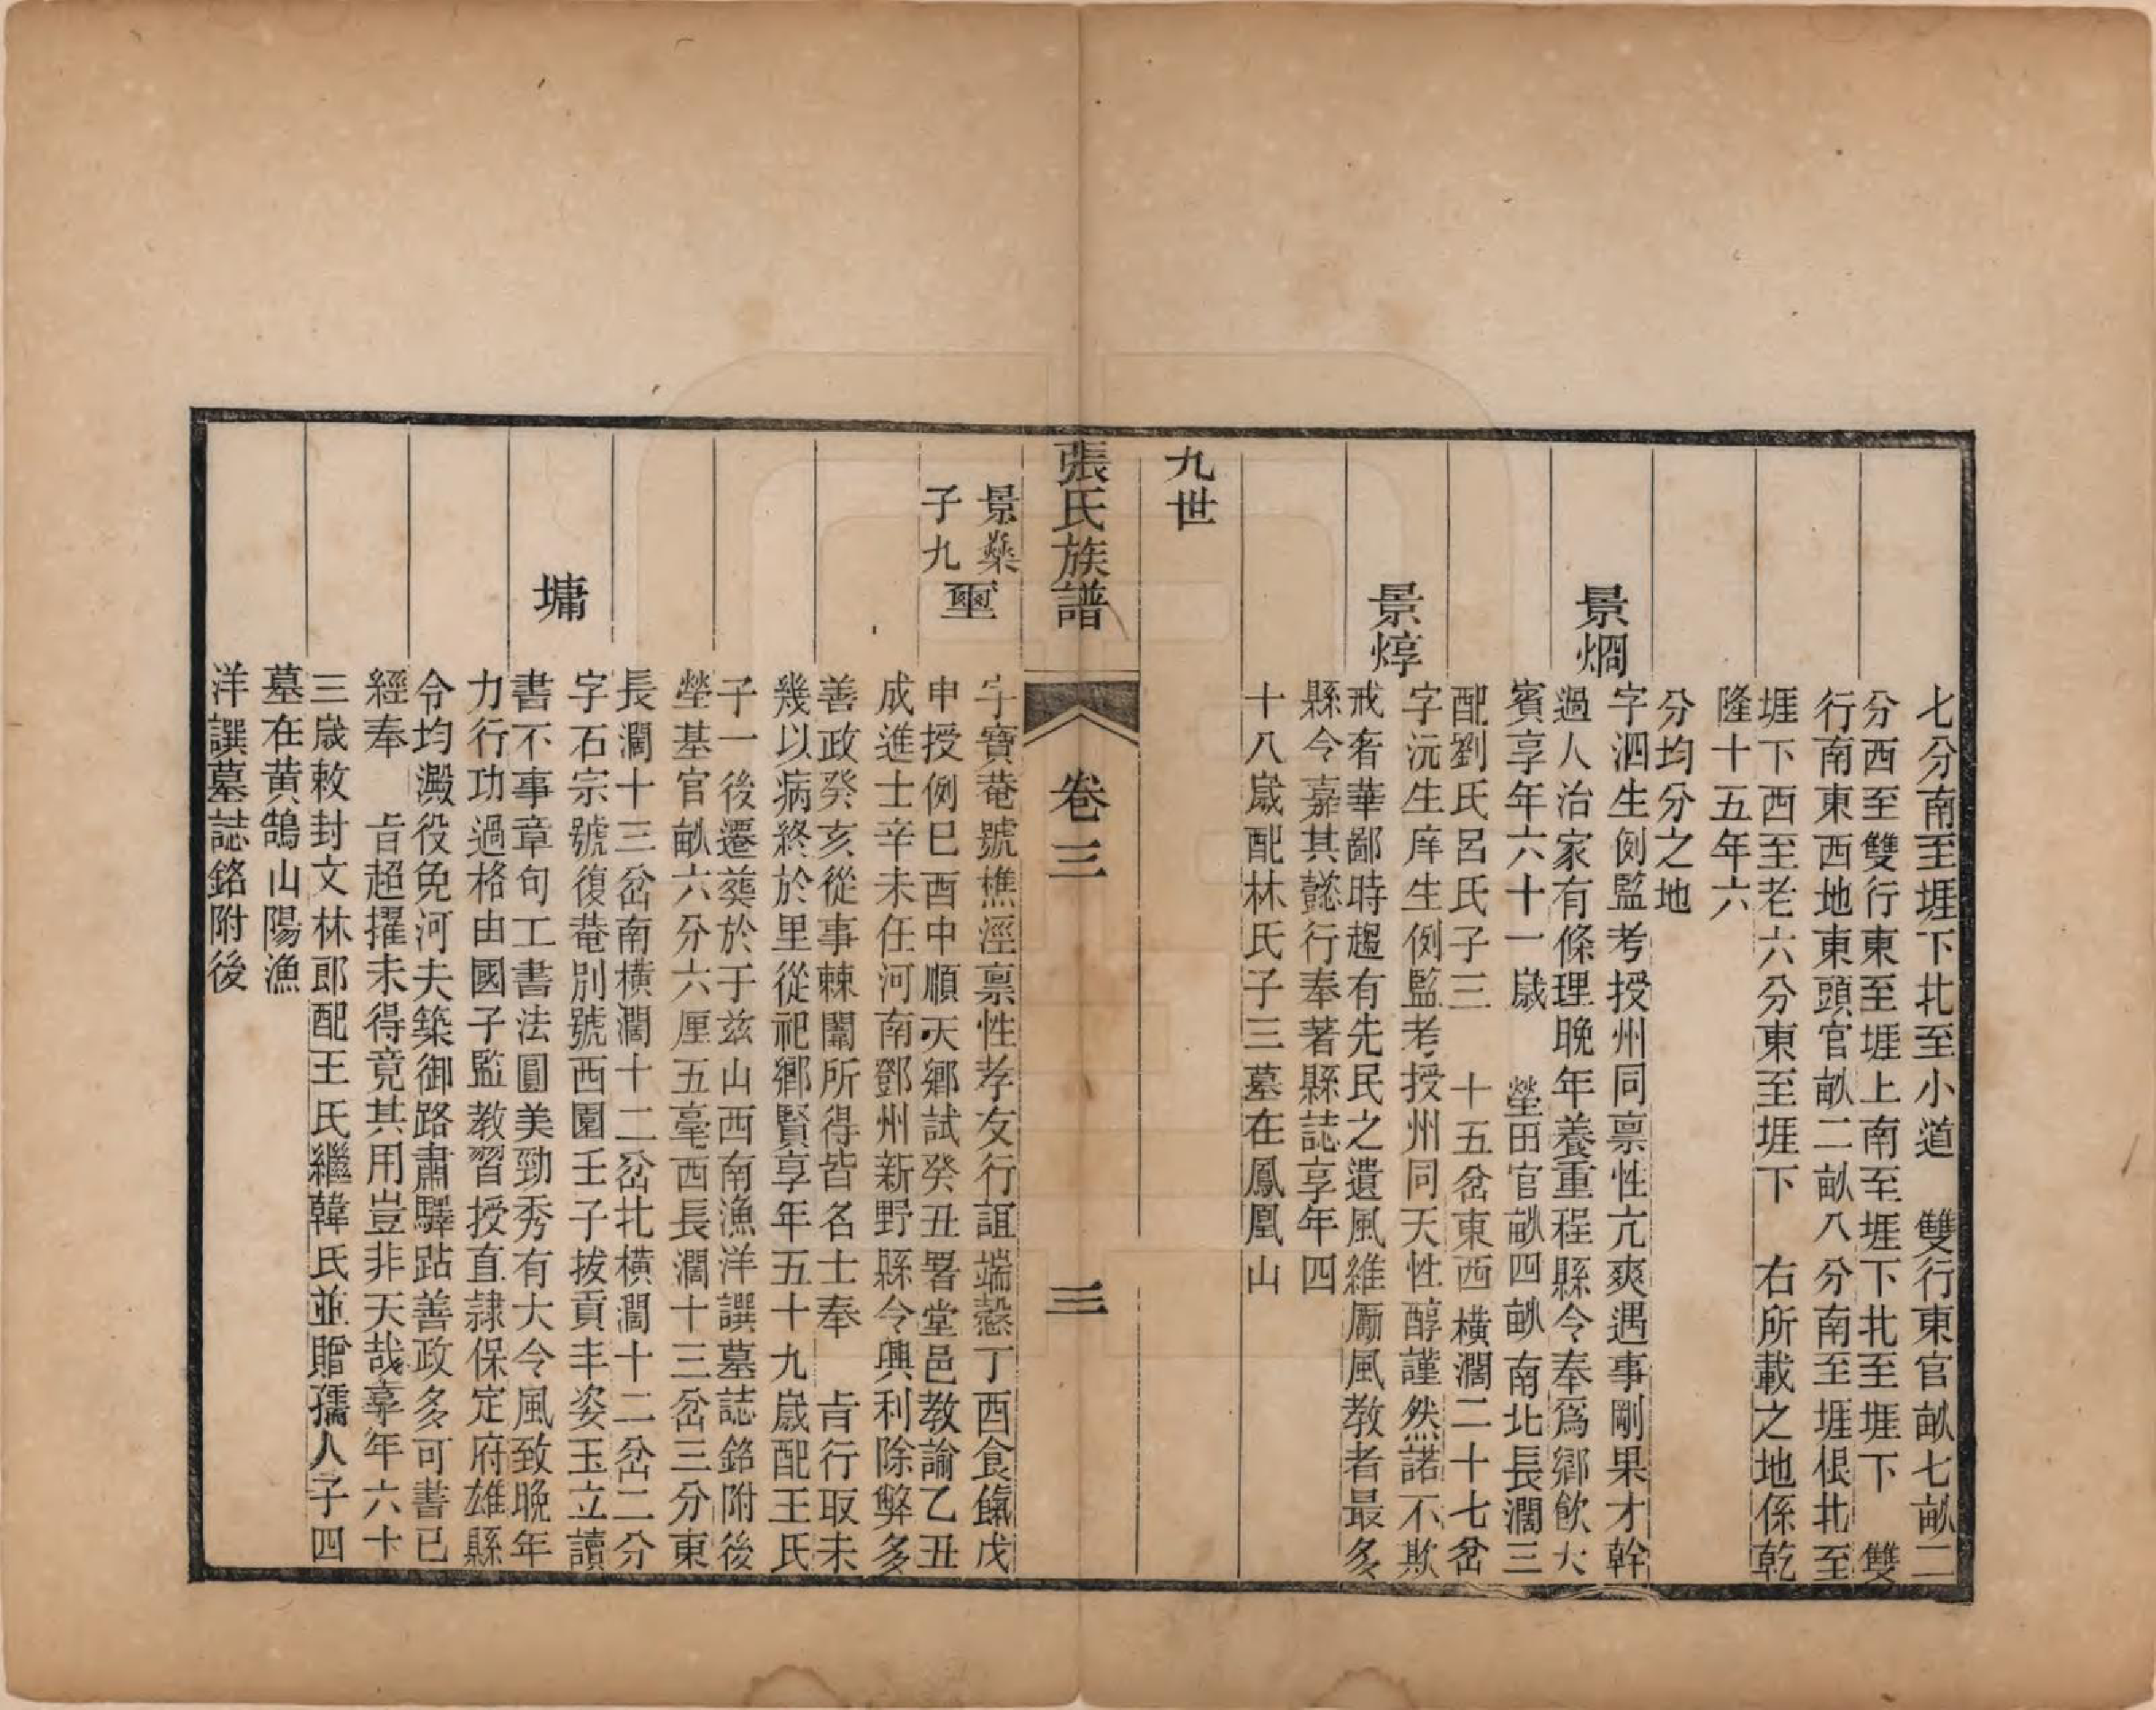 七分南至堐下北至小道　雙行東官畝七畝二
分西至雙行東至堐上南至堐下北至堐下　雙
行南東西地東頭官畝二畝八分南至堐根北至
堐下西至老六分東至堐下　右所載之地係乾
隆十五年六
分均分之地
景烱
字泗生例監考授州同禀性亢爽遇事剛果才幹
過人治家有條理晚年養重程縣令奉爲鄉飲大
賓享年六十一歲　塋田官畝四畝南北長濶三
配劉氏呂氏子三　十五岔東西橫濶二十七岔
景焞
字沅生庠生例監考授州同天性醇謹然諾不欺
戒奢華鄙時趨有先民之遺風維厲風教者最多
縣令嘉其懿行奉著縣誌享年四
十八歲配林氏子三墓在鳳凰山
九世
張氏族譜　卷三　三
景燊
子九
壐
字寶菴號樵溼禀性孝友行誼端慤丁酉食餼戊
申授例巳酉中順天鄉試癸丑署堂邑教諭乙丑
成進士辛未任河南鄧州新野縣令興利除弊多
善政癸亥從事棘闈所得皆名士奉　旨行取未
幾以病終於里從祀鄉賢享年五十九歲配王氏
子一後遷葬於于兹山西南漁洋譔墓誌銘附後
塋基官畝六分六厘五毫西長濶十三岔三分東
長濶十三岔南橫濶十二岔北橫濶十二岔二分
墉
字石宗號復菴別號西園壬子拔貢丰姿玉立讀
書不事章句工書法圓美勁秀有大令風致晚年
力行功過格由國子監教習授直隸保定府雄縣
令均澱役免河夫築御路肅驛跕善政多可書已
經奉　旨超擢未得竟其用豈非天哉享年六十
三歲敕封文林郎配王氏繼韓氏並贈孺人子四
墓在黄鵠山陽漁
洋譔墓誌銘附後